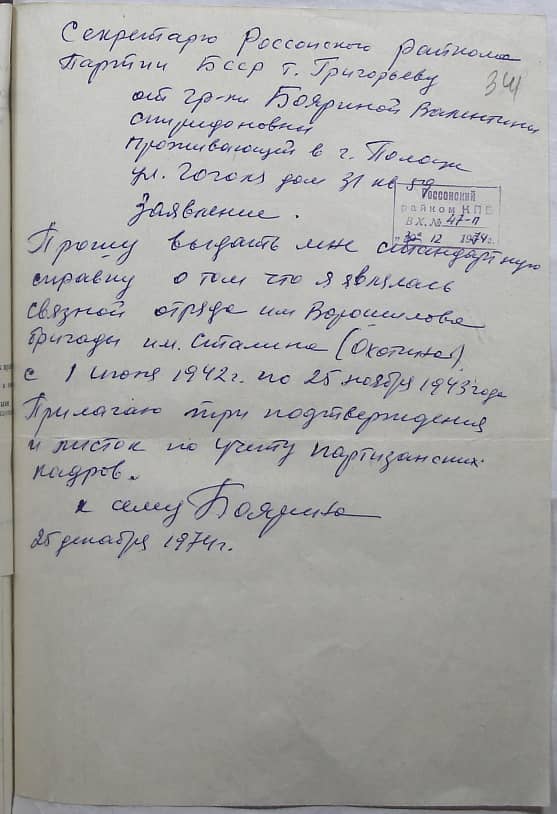 Секретарю Россонского райкома
Партии БССР т. Григорьеву
341
от гр-ки Бояриной Валентины
Спиридоновны
проживающей в г. Полоцк
ул. Гоголя дом 31 кв 59
Россонский
райком КПБ
ВХ. № 47-п
"30" 12 1974 г.
Заявление.
Прошу выдать мне стандартную
справку о том что я являлась
связной отряда им Ворошилова
бригады им. Сталина (Охотина)
с 1 июня 1942 г. по 25 ноября 1943 года
Прилагаю три подтверждения
и листок по учету партизанских
кадров.
к сему Боярина
25 декабря 1974 г.